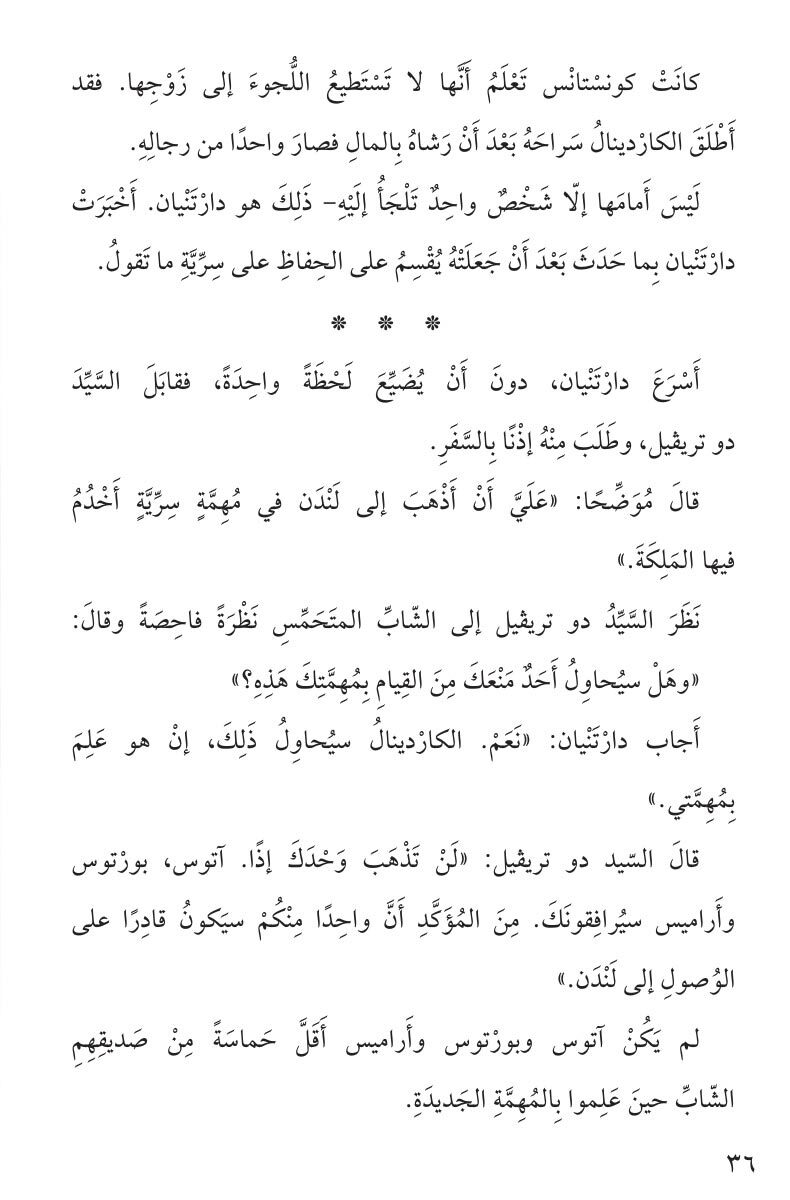 كانَتْ كونسْتانْس تَعْلَمُ أَنَّها لا تَسْتَطيعُ اللُّجوءَ إلى زَوْجِها. فقد
أَطْلَقَ الكارْدينالُ سَراحَهُ بَعْدَ أَنْ رَشاهُ بِالمالِ فصارَ واحدًا من رجالِهِ.
لَيْسَ أَمامَها إلّا شَخْصٌ واحِدٌ تَلْجَأُ إلَيْهِ– ذَلِكَ هو دارْتَنْيان. أَخْبَرَتْ
دارْتَنْيان بِما حَدَثَ بَعْدَ أَنْ جَعَلَتْهُ يُقْسِمُ على الحِفاظِ على سِرِّيَّةِ ما تَقولُ.
* * *
أَسْرَعَ دارْتَنْيان، دونَ أَنْ يُضَيِّعَ لَحْظَةً واحِدَةً، فقابَلَ السَّيِّدَ
دو تريڤيل، وطَلَبَ مِنْهُ إذْنًا بِالسَّفَرِ.
قالَ مُوَضِّحًا: «عَلَيَّ أَنْ أَذْهَبَ إلى لَنْدَن في مُهِمَّةٍ سِرِّيَّةٍ أَخْدُمُ
فيها المَلِكَةَ.»
نَظَرَ السَّيِّدُ دو تريڤيل إلى الشّابِّ المتَحَمِّسِ نَظْرَةً فاحِصَةً وقالَ:
«وهَلْ سيُحاوِلُ أَحَدٌ مَنْعَكَ مِنَ القِيامِ بِمُهِمَّتِكَ هَذِهِ؟»
أَجاب دارْتَنْيان: «نَعَمْ. الكارْدينالُ سيُحاوِلُ ذَلِكَ، إنْ هو عَلِمَ
بِمُهِمَّتي.»
قالَ السّيد دو تريڤيل: «لَنْ تَذْهَبَ وَحْدَكَ إذًا. آتوس، بورْتوس
وأَراميس سيُرافِقونَكَ. مِنَ المُؤَكَّدِ أَنَّ واحِدًا مِنْكُمْ سيَكونُ قادِرًا على
الوُصولِ إلى لَنْدَن.»
لم يَكُنْ آتوس وبورْتوس وأَراميس أَقَلَّ حَماسَةً مِنْ صَديقِهِمِ
الشّابِّ حينَ عَلِموا بِالمُهِمَّةِ الجَديدَةِ.
٣٦